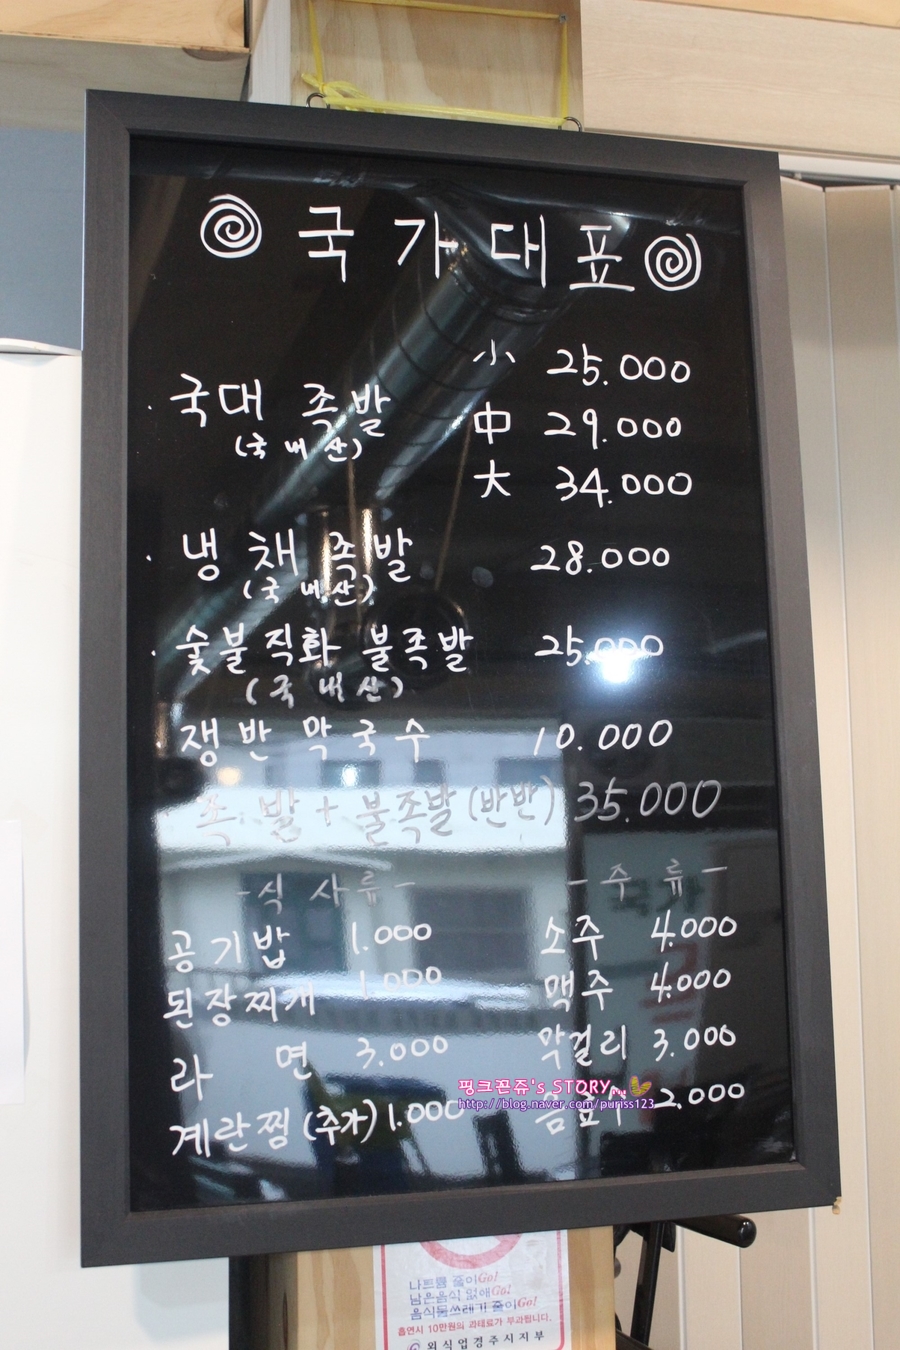 국가대표
국대 족발 小 25.000
(국내산) 中 29.000
大 34.000
냉채족발 28.000
(국내산)
숯불직화 불족발 25.000
(국내산)
쟁반막국수 10.000
족발+불족발(반반) 35.000
-식사류- -주류-
공기밥 1.000 소주 4.000
된장찌개 1.000 맥주 4.000
라면 3.000 막걸리 3.000
계란찜(추가) 1.000 음료수 2.000
핑크꼰쥬's STORY
http://blog.naver.com/puriss123
나트륨 줄이Go!
남은음식 없애Go!
음식물쓰레기 줄이Go!
흡연시 10만원의 과태료가 부과됩니다.
외식업경주시지부